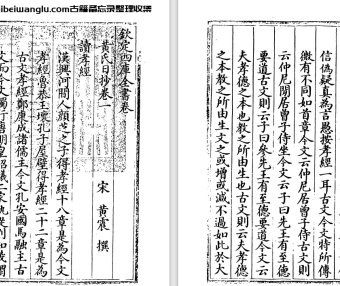 ibeiwanglu.com古籍备忘录整理收集
欽定四庫全書卷
黃氏日抄卷一
宋 黃震 撰
讀孝經
漢興河間人顏芝之子得孝經十八章是為今文
孝經魯恭王壞孔子屋壁得孝經二十二章是為
古文孝經鄭康成諸儒主今文孔安國馬融主古
文而今文獨行唐明皇詔議二家孰從劉知幾謂
信偽疑真為言愚按孝經一耳古文今文特所傳
微有不同如首章今文云仲尼居曾子侍古文則
云仲尼閒居曾子侍坐今文云子曰先王有至德
要道古文則云子曰參先王有至德要道今文云
夫孝德之本也教之所由生也古文則云夫孝德
之本教之所由生文之或增或減不過如此於大